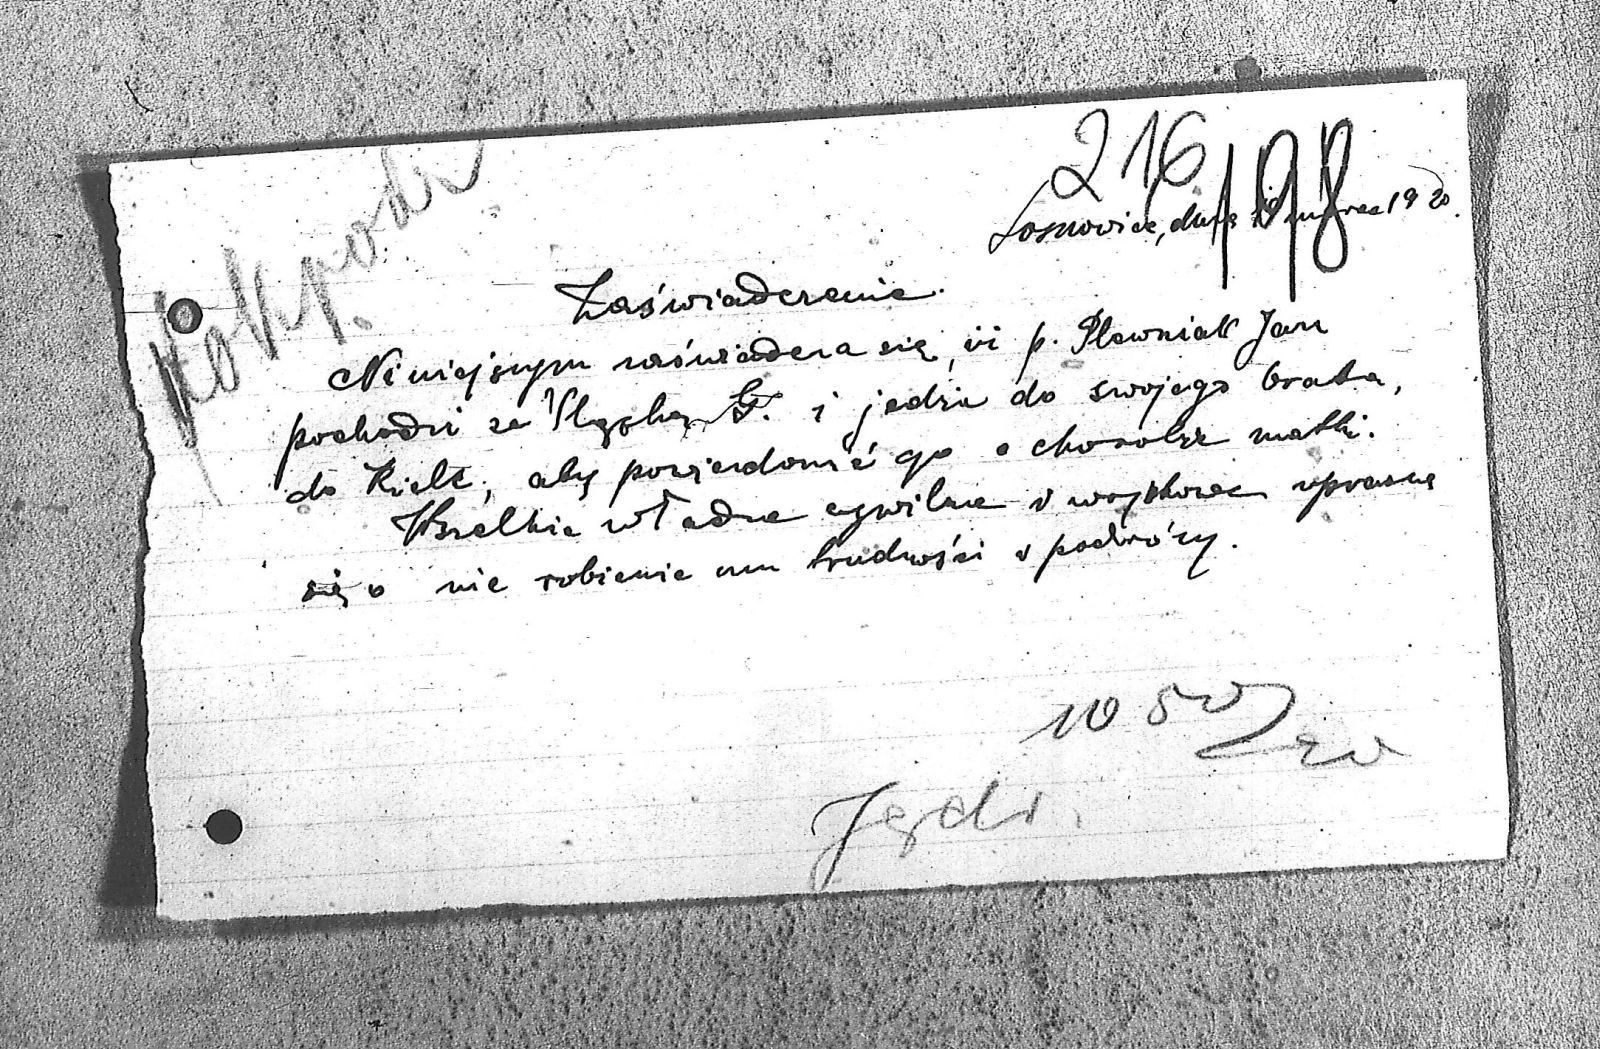 216
198
Sosnowice, dnia marca 1920.
Zaświadczenie.
Niniejszym zaświadcza się, iż p. Plewniak Jan
pochodzi ze Śląska G. i jedzie do swojego brata,
do Kielc, aby powiedomić go o chorobie matki.
Wszelkie władze cywilne i wojskowe uprasza
się o nie robienie mu trudności w podróży.
10 50